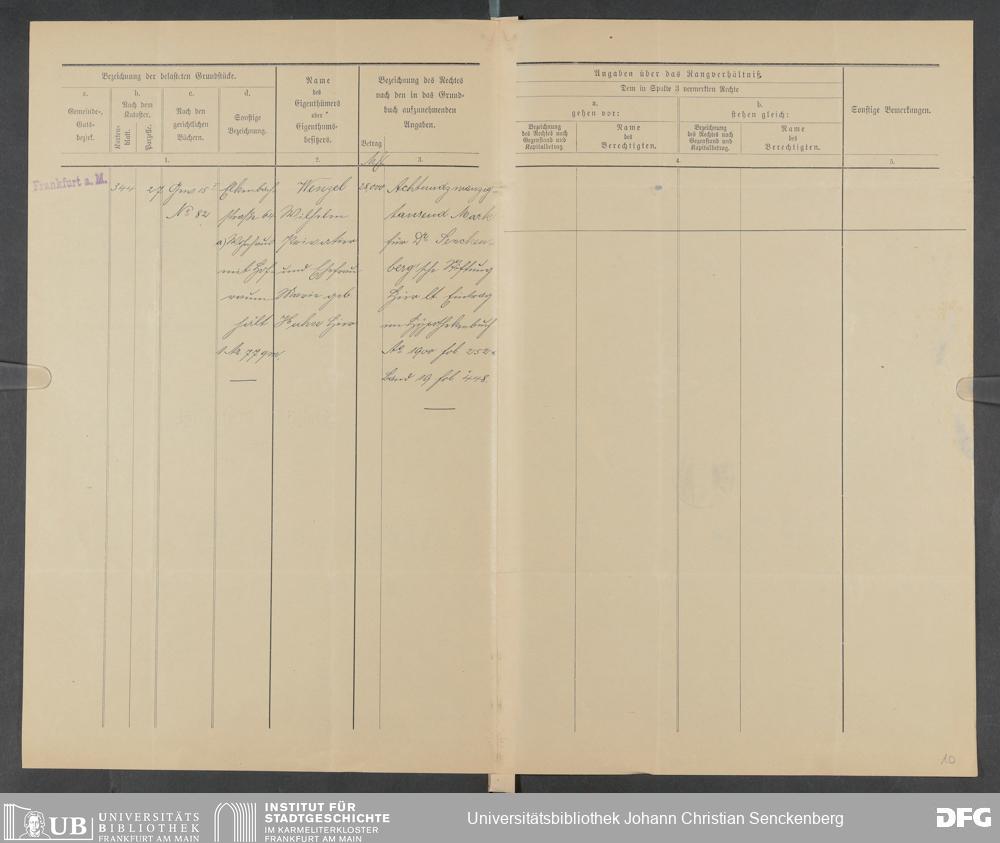 Bezeichnung der belasteten Grundstücke.
a.
Gemeinde-,
Guts-
bezirk.
b.
Nach dem
Kataster.
Karten-
blatt.
Parzelle.
c.
Nach den
gerichtlichen
Büchern.
d.
Sonstige
Bezeichnung.
1.
Name
des
Eigenthümers
oder
Eigenthums-
besitzers.
2.
Bezeichnung des Rechtes
nach den in das Grund-
buch aufzunehmenden
Angaben.
Betrag
3.
Frankfurt a. M.
344
27
Gew 15
No 82
straße 64
a) Wohnhaus
mit Hof-
raum
hält
1 Ar 77 qm.
Wenzel
Wilhelm
Privatier
und Ehefrau
Marie geb
hier
28000
Achtundzwanzig-
tausend Mark
für Dr. Sencken-
berg'sche Stiftung
hier lt. Eintrag
im Hypothekenbuch
de 1900 fol 252
Band 19 fol 448.
Angaben über das Rangverhältniß.
Dem in Spalte 3 vermerkten Rechte
a.
gehen vor:
Bezeichnung
des Rechtes nach
Gegenstand und
Kapitalbetrag.
Name
des
Berechtigten.
b.
stehen gleich:
Bezeichnung
des Rechtes nach
Gegenstand und
Kapitalbetrag.
Name
des
Berechtigten.
4.
Sonstige Bemerkungen.
5.
10
UB UNIVERSITÄTS
BIBLIOTHEK
FRANKFURT AM MAIN
INSTITUT FÜR
STADTGESCHICHTE
IM KARMELITERKLOSTER
FRANKFURT AM MAIN
Universitätsbibliothek Johann Christian Senckenberg
DFG